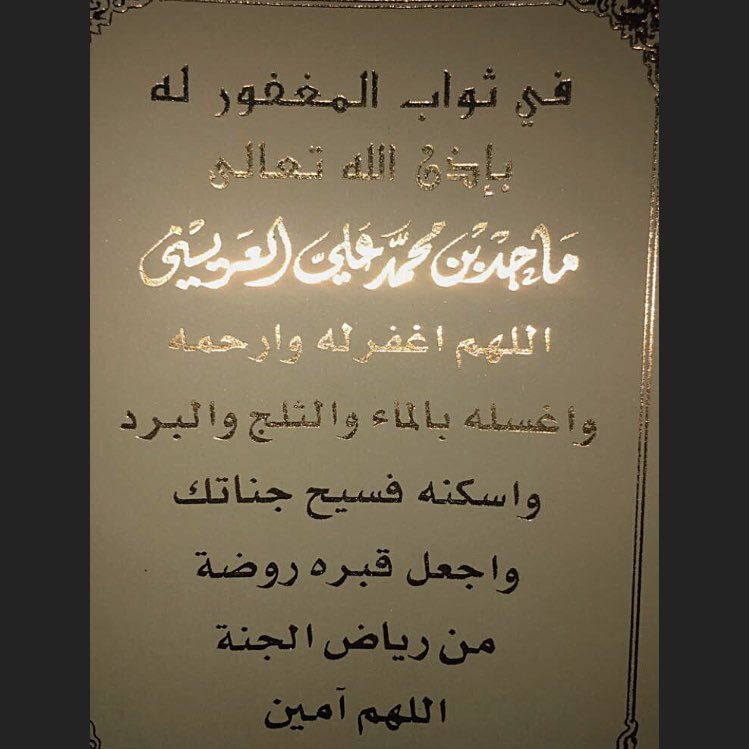 في ثواب المغفور له
بإذن الله تعالى
ماجد بن محمد علي العويسي
اللهم اغفرله وارحمه
واغسله بالماء والثلج والبرد
واسكنه فسيح جناتك
واجعل قبره روضة
من رياض الجنة
اللهم آمين